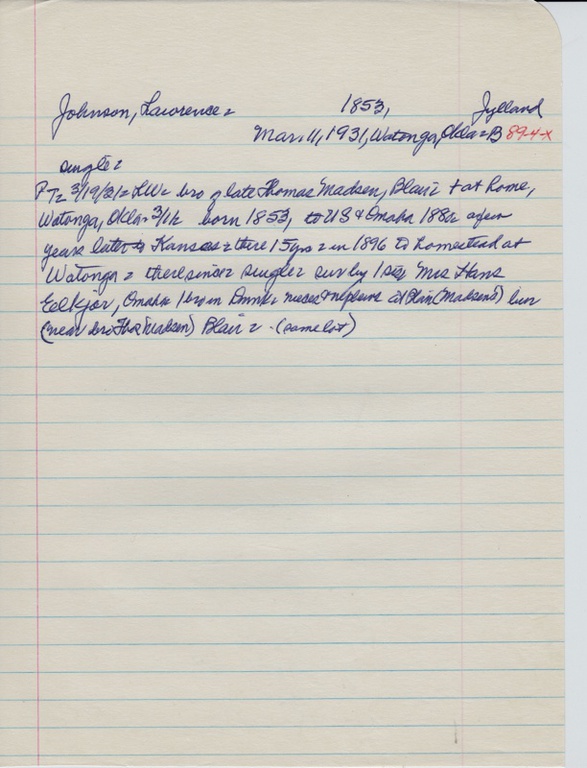 Johnson, Lawrence = 1853, Jylland
Mar. 11, 1931, Watonga, Okla = B 89-4-x
single =
PT = 3/19/31 = LW = bro of late Thomas Madsen, Blair = + at home,
Watonga, Okla = 3/11 = born 1853, to US & Omaha 1880 = a few
years later to Kansas = there 15 yrs = in 1896 to homestead at
Watonga = there since = single = sur by 1 sis Mrs Hans
Eelkjor, Omaha = 1 bro in Denmk = nieces & nephews at Blair (Madsens) bur
(near bro Thos Madsen) Blair = (same lot)